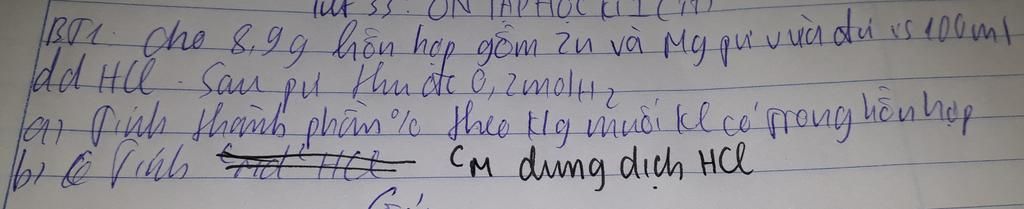 Tiết 33: ÔN TẬP HỌC KÌ I (
BT1. Cho 8,9g hỗn hợp gồm Zn và Mg pư vừa đủ vs 100ml
dd HCl. Sau pư thu đc 0,2mol H2
a) Tính thành phần % theo klg muối kl có trong hỗn hợp
b) Tính CM dung dịch HCl